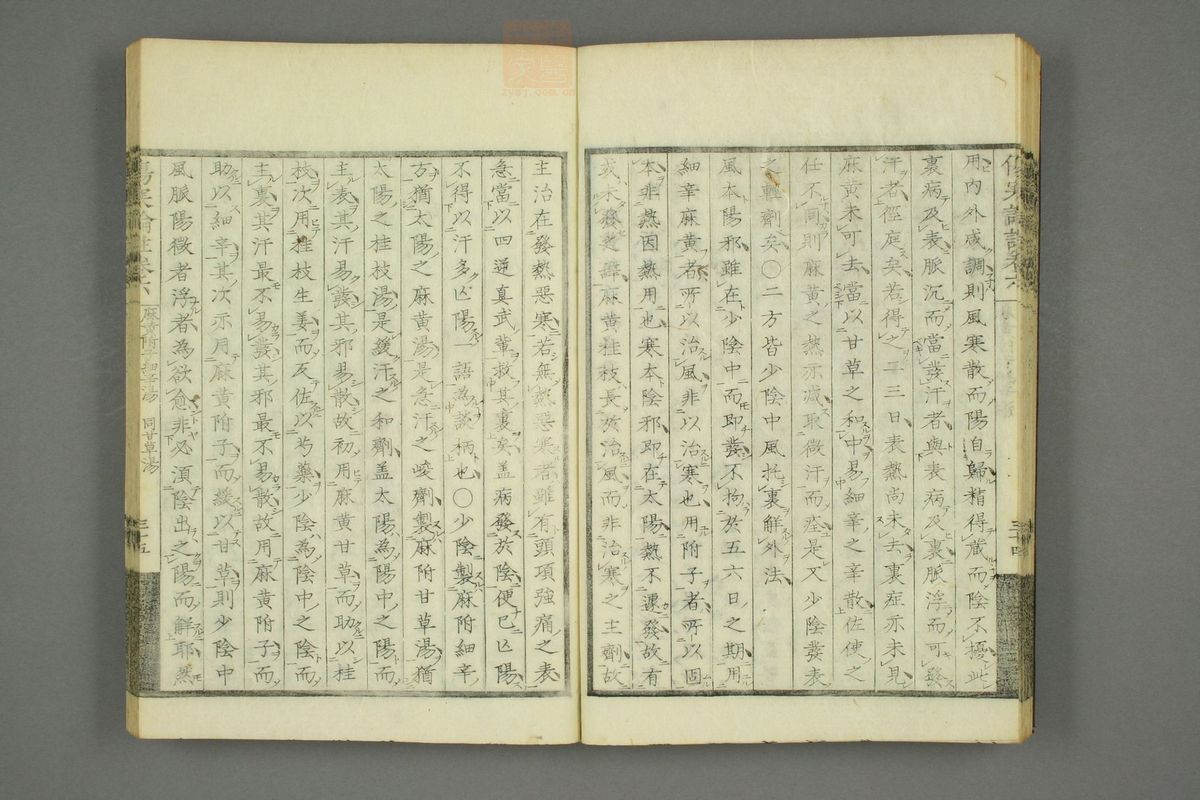 用內外咸調則風寒散而陽自歸精得藏而陰不擾此
裏病及表脈沉而當發汗者與表病及裏脈浮而可發
汗者徑庭矣若得之二三日表熱尚未去裏症亦未見
麻黃未可去當以甘草之和中易細辛之辛散佐使之
任不同則麻黃之熱亦減取微汗而痊是又少陰發表
之輕劑矣〇二方皆少陰中風托裏解外法
風本陽邪雖在少陰中而即發不拘於五六日之期用
細辛麻黃者所以治風非以治寒也用附子者所以固
本非熱因熱用也寒本陰邪即在太陽熱不遽發故有
或未發之辭麻黃桂枝長於治風而非治寒之主劑故
三十四
主治在發熱惡寒若無熱惡寒者雖有頭項強痛之表
急當以四逆真武輩救其裏矣蓋病發於陰便已亡陽
不得以汗多亡陽一語為談柄也〇少陰製麻附細辛
方猶太陽之麻黃湯是急汗之峻劑製麻附甘草湯猶
太陽之桂枝湯是緩汗之和劑蓋太陽為陽中之陽而
主表其汗易發其邪易散故初用麻黃甘草而助以桂
枝次用桂枝生姜而反佐以芍藥少陰為陰中之陰而
主裏其汗最不易發其邪最不易散故用麻黃附子而
助以細辛其次亦用麻黃附子而緩以甘草則少陰中
風脈陽微者浮者為欲愈非必須陰出之陽而解耶然
麻黃附子細辛湯 同甘草湯
三十五